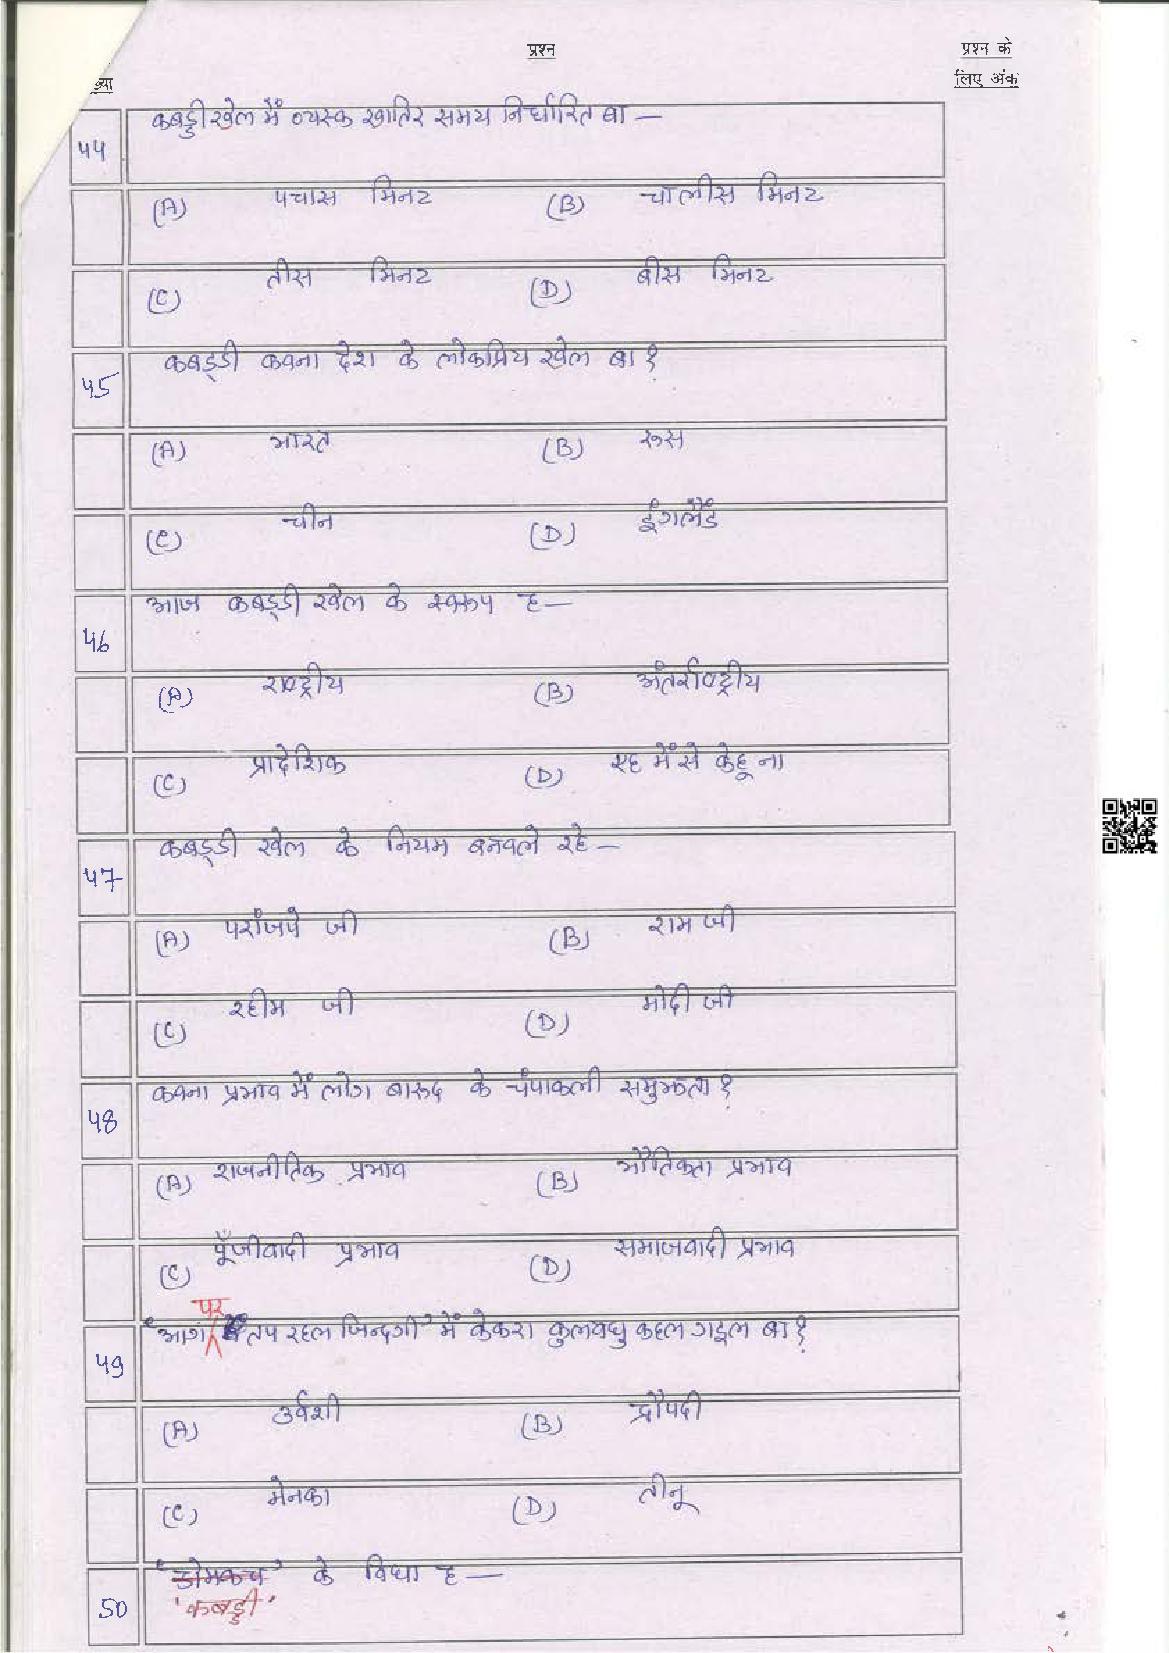 प्रश्न
प्रश्न के
लिए अंक
ख्या
44 कबड्डी खेल में व्यस्क खातिर समय निर्धारित बा —
(A) पचास मिनट (B) चालीस मिनट
(C) तीस मिनट (D) बीस मिनट
45 कबड्डी कवना देश के लोकप्रिय खेल बा ?
(A) भारत (B) रूस
(C) चीन (D) इंगलैंड
46 आज कबड्डी खेल के स्वरूप ह —
(A) राष्ट्रीय (B) अंतर्राष्ट्रीय
(C) प्रादेशिक (D) एह में से केहू ना
47 कबड्डी खेल के नियम बनवले रहे —
(A) परांजपे जी (B) राम जी
(C) रहीम जी (D) मोदी जी
48 कवना प्रभाव में लोग बारूद के चंपाकली समुझता ?
(A) राजनीतिक प्रभाव (B) भौतिकता प्रभाव
(C) पूँजीवादी प्रभाव (D) समाजवादी प्रभाव
49 'आग पर तप रहल जिन्दगी' में केकरा कुलवधु कहल गइल बा ?
(A) उर्वशी (B) द्रौपदी
(C) मेनका (D) तीनू
50 'डोमकच' के विधा ह —
'कबड्डी'